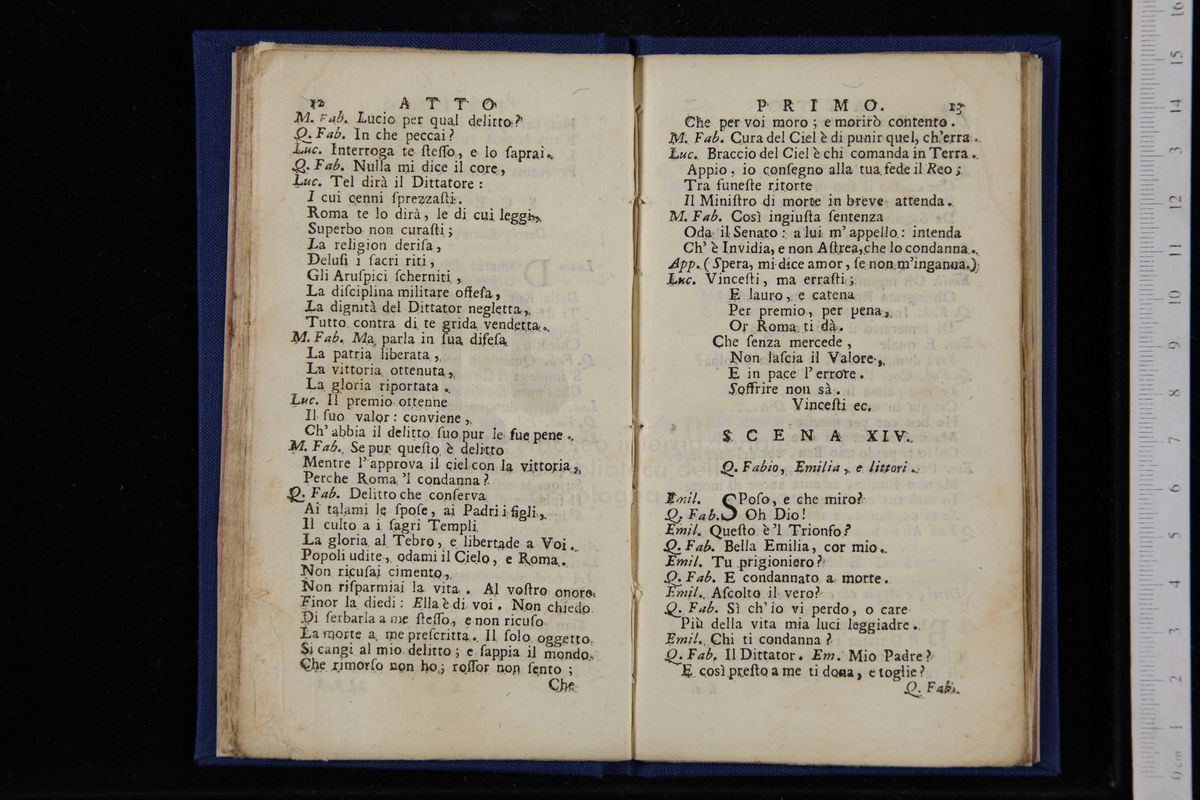 12 ATTO
M. Fab. Lucio per qual delitto?
Q. Fab. In che peccai?
Luc. Interroga te ſteſſo, e lo ſaprai.
Q. Fab. Nulla mi dice il core,
Luc. Tel dirà il Dittatore:
I cui cenni ſprezzaſti.
Roma te lo dirà, le di cui leggi,
Superbo non curaſti;
La religion deriſa,
Deluſi i ſacri riti,
Gli Aruſpici ſcherniti,
La diſciplina militare offeſa,
La dignità del Dittator negletta,
Tutto contra di te grida vendetta.
M. Fab. Ma parla in ſua difeſa
La patria liberata,
La vittoria ottenuta,
La gloria riportata.
Luc. Il premio ottenne
Il ſuo valor: conviene,
Ch' abbia il delitto ſuo pur le ſue pene.
M. Fab. Se pur queſto è delitto
Mentre l'approva il ciel con la vittoria,
Perche Roma 'l condanna?
Q. Fab. Delitto che conſerva
Ai talami le ſpoſe, ai Padri i figli,
Il culto a i ſagri Templi
La gloria al Tebro, e libertade a Voi.
Popoli udite, odami il Cielo, e Roma.
Non ricuſai cimento,
Non riſparmiai la vita. Al voſtro onore
Finor la diedi: Ella è di voi. Non chiedo
Di ſerbarla a me ſteſſo, e non ricuſo
La morte a me preſcritta. Il ſolo oggetto
Si cangi al mio delitto; e ſappia il mondo
Che rimorſo non ho; roſſor non ſento;
Che
PRIMO. 13
Che per voi moro; e morirò contento.
M. Fab. Cura del Ciel è di punir quel, ch'erra.
Luc. Braccio del Ciel è chi comanda in Terra.
Appio, io conſegno alla tua fede il Reo;
Tra funeſte ritorte
Il Miniſtro di morte in breve attenda.
M. Fab. Così ingiuſta ſentenza
Oda il Senato: a lui m'appello: intenda
Ch' è Invidia, e non Aſtrea, che lo condanna.
App. (Spera, mi dice amor, ſe non m'inganna.)
Luc. Vinceſti, ma erraſti;
E lauro, e catena
Per premio, per pena,
Or Roma ti dà.
Che ſenza mercede,
Non laſcia il Valore,
E in pace l'errore.
Soffrire non sà.
Vinceſti ec.
SCENA XIV.
Q. Fabio, Emilia, e littori.
Emil. SPoſo, e che miro?
Q. Fab. Oh Dio!
Emil. Queſto è 'l Trionfo?
Q. Fab. Bella Emilia, cor mio.
Emil. Tu prigioniero?
Q. Fab. E condannato a morte.
Emil. Aſcolto il vero?
Q. Fab. Sì ch'io vi perdo, o care
Più della vita mia luci leggiadre.
Emil. Chi ti condanna?
Q. Fab. Il Dittator. Em. Mio Padre?
E così preſto a me ti dona, e toglie?
Q. Fab.